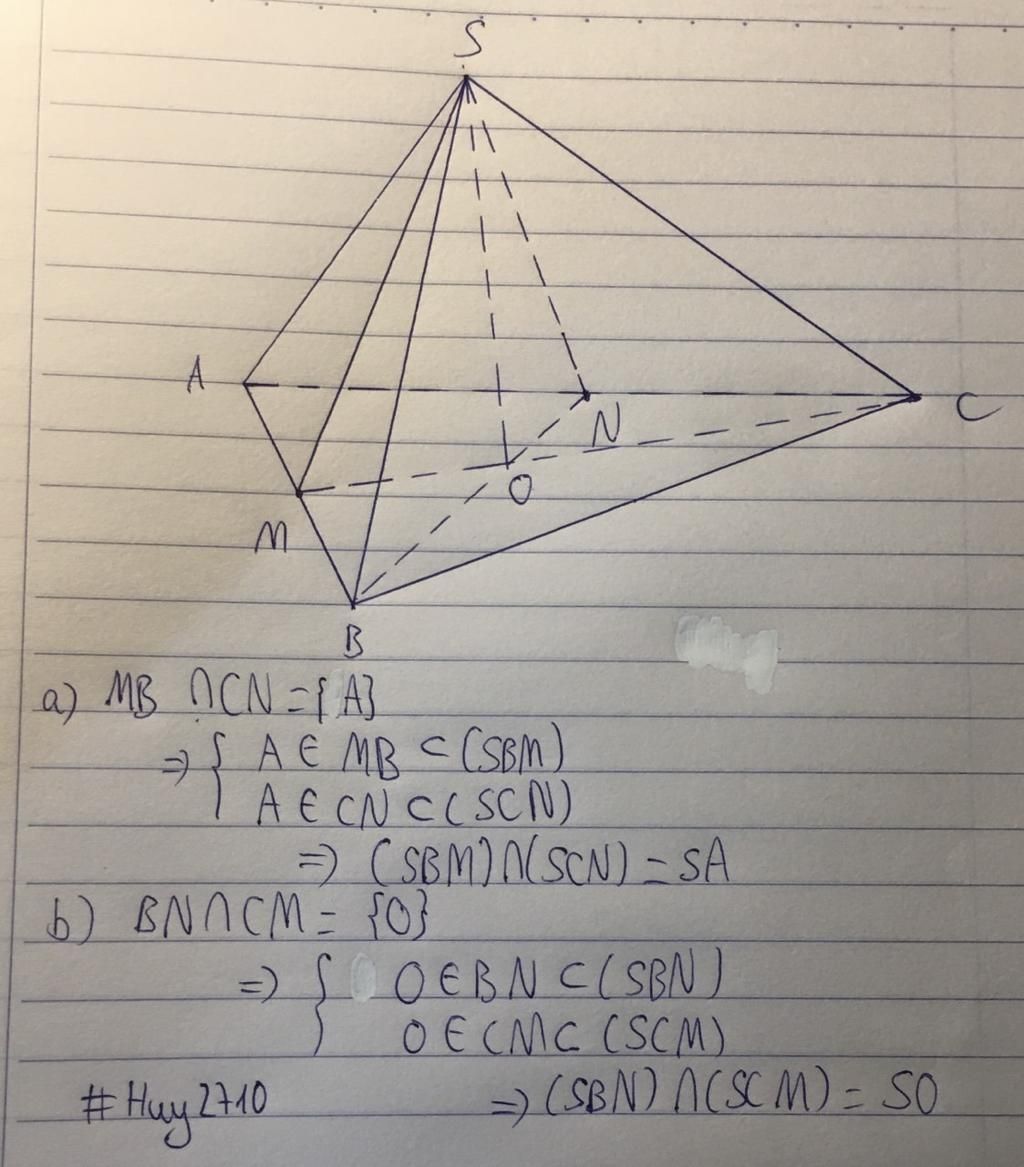 S
A
N
C
O
M
B
a) MB ∩ CN = {A}
=> { A ∈ MB ⊂ (SBM)
A ∈ CN ⊂ (SCN)
=> (SBM) ∩ (SCN) = SA
b) BN ∩ CM = {O}
=> { O ∈ BN ⊂ (SBN)
O ∈ CM ⊂ (SCM)
#Huy2710 => (SBN) ∩ (SCM) = SO